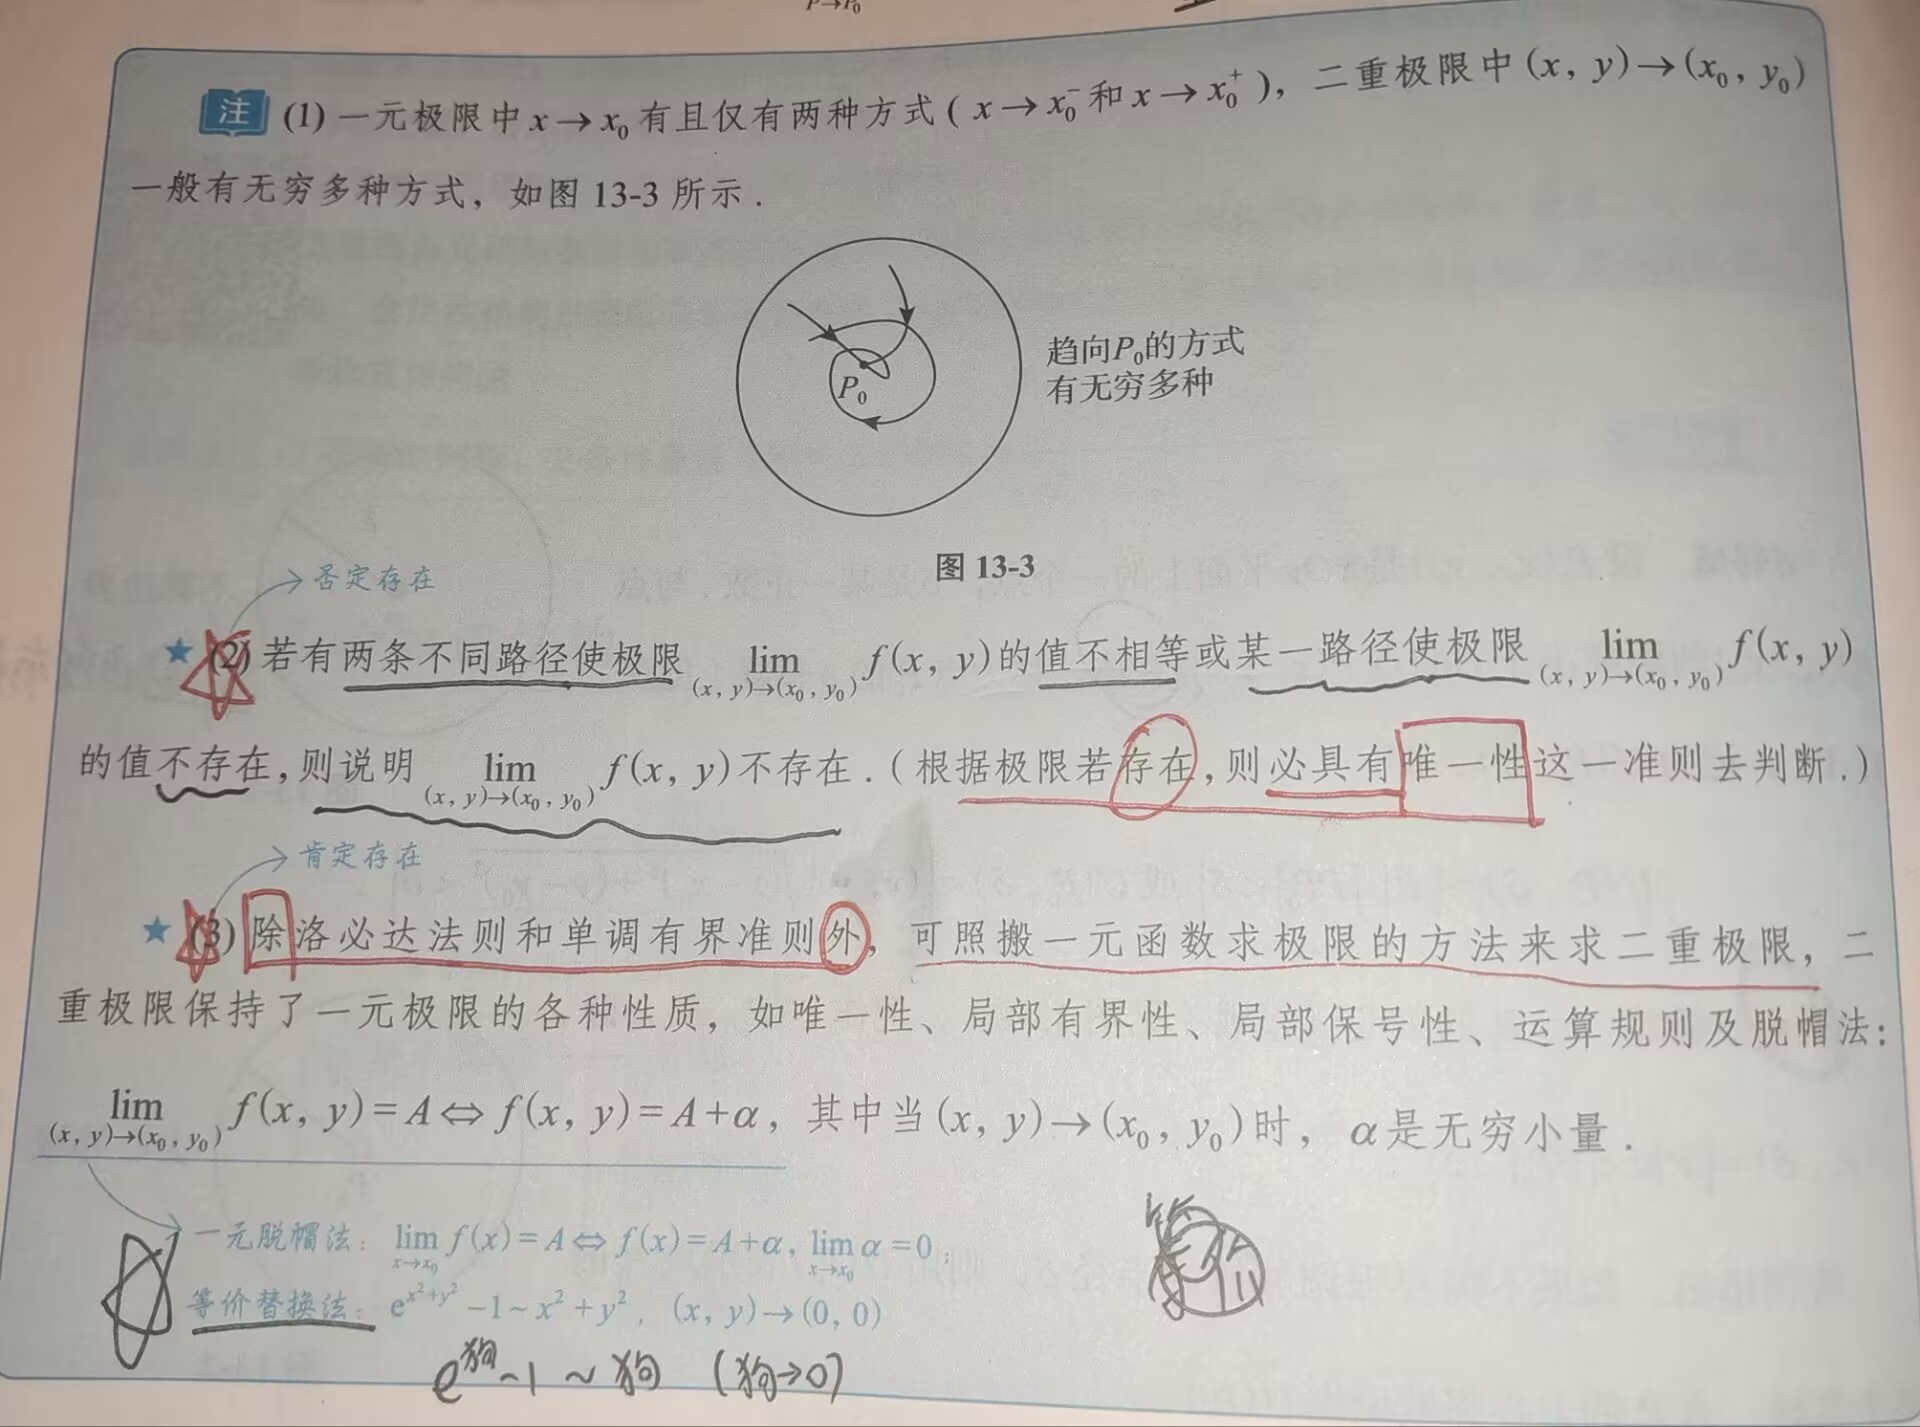 P→P₀
注 (1) 一元极限中 x→x₀ 有且仅有两种方式( x→x₀⁻ 和 x→x₀⁺ ), 二重极限中 (x, y)→(x₀, y₀)
一般有无穷多种方式, 如图 13-3 所示.
趋向P₀的方式
有无穷多种
P₀
图 13-3
否定存在
★ (2) 若有两条不同路径使极限 lim f(x, y) 的值不相等或某一路径使极限 lim f(x, y)
(x, y)→(x₀, y₀) (x, y)→(x₀, y₀)
的值不存在, 则说明 lim f(x, y) 不存在. (根据极限若存在, 则必具有唯一性这一准则去判断.)
(x, y)→(x₀, y₀)
肯定存在
★ (3) 除洛必达法则和单调有界准则外, 可照搬一元函数求极限的方法来求二重极限, 二
重极限保持了一元极限的各种性质, 如唯一性、局部有界性、局部保号性、运算规则及脱帽法:
lim f(x, y)=A⇔f(x, y)=A+α, 其中当 (x, y)→(x₀, y₀) 时, α是无穷小量.
(x, y)→(x₀, y₀)
一元脱帽法: lim f(x)=A⇔f(x)=A+α, lim α=0;
x→x₀ x→x₀
等价替换法: e^(x²+y²) −1~x²+y², (x, y)→(0, 0)
e^狗 -1 ~ 狗 (狗→0)